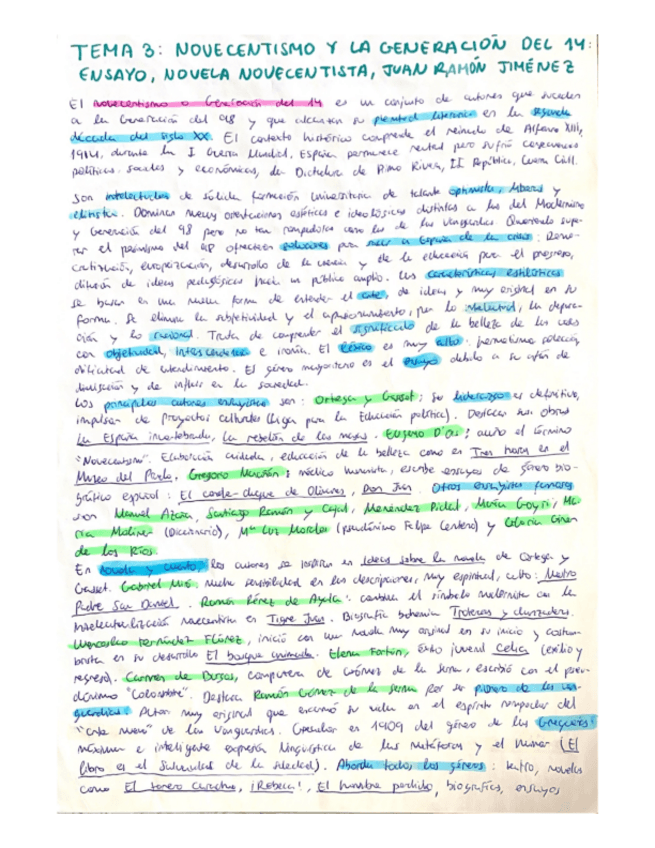 TEMA 3: NOVECENTISMO Y LA GENERACIÓN DEL 14:
ENSAYO, NOVELA NOVECENTISTA, JUAN RAMÓN JIMÉNEZ
El novecentismo o Generación del 14 es un conjunto de autores que suceden
a la Generación del 98 y que alcanzan su plenitud literaria en la segunda
década del siglo XX. El contexto histórico comprende el reinado de Alfonso XIII,
1914, durante la I Guerra Mundial, España permanece neutral pero sufrió consecuencias
políticas, sociales y económicas, la Dictadura de Primo Rivera, II República, Guerra Civil.
Son intelectuales de sólida formación universitaria de talante optimista, liberal y
elitista. Dominan nuevas orientaciones estéticas e ideológicas distintas a las del Modernismo
y Generación del 98 pero no tan rompedoras como las de las Vanguardias. Queriendo supe-
rar el pesimismo del 98 ofrecieron soluciones para sacar a España de la crisis:
europeización, desarrollo de la ciencia y de la educación para el progreso,
difusión de ideas pedagógicas hacia un público amplio. Las características estilísticas
se basan en una nueva forma de entender el arte, de ideas y muy original en su
forma. Se elimina la subjetividad y el por lo intelectual, la depura-
ción y lo racional. Trata de comprender el significado de la belleza de las cosas
con objetividad, e ironía. El léxico es muy culto:
dificultad de entendimiento. El género mayoritario es el ensayo debido a su afán de
divulgación y de influir en la sociedad.
Los principales autores ensayistas son: Ortega y Gasset: su liderazgo es definitivo,
impulsor de Proyectos culturales (Liga para la Educación política). Destacan sus obras
La España invertebrada, La rebelión de las masas. Eugenio D'Ors: acuñó el término
"Novecentismo". Elaboración cuidada, educación de la belleza como en Tres horas en el
Museo del Prado. Gregorio Marañón: médico humanista, escribe ensayos de género bio-
gráfico español: El conde-duque de Olivares, Don Juan. Otros ensayistas famosos
son Manuel Azaña, Santiago Ramón y Cajal, Menéndez Pidal, María Goyri, Ma-
ría Moliner (Diccionario), Mª Luz Morales (pseudónimo Felipe Centeno) y Gloria Giner
de los Ríos.
En novela y cuento, los autores se inspiran en Ideas sobre la novela de Ortega y
Gasset. Gabriel Miró: mucha sensibilidad en las descripciones, muy espiritual, culto: Nuestro
Padre San Daniel. Ramón Pérez de Ayala: cambia el símbolo modernista con la
intelectualización novecentista en Tigre Juan. Biografía bohemia Troteras y danzaderas.
Wenceslao Fernández Flórez, inició con una novela muy original en su inicio y costum-
brista en su desarrollo El bosque animado. Elena Fortún, éxito juvenil Celia (exilio y
regreso). Carmen de Burgos, compañera de Gómez de la Serna, escribió con el pseu-
dónimo "Colombine". Destaca Ramón Gómez de la Serna por ser pionero de las van-
guardias. Autor muy original que encarnó su vida en el espíritu rompedor del
"arte nuevo" de las Vanguardias. Creador en 1909 del género de las Greguerías:
máxima e inteligente expresión lingüística de las metáforas y el humor (El
libro es el salvavidas de la soledad). Aborda todos los géneros: teatro, novelas
como El torero Caracho, ¡Rebeca!, El hombre perdido, biografías, ensayos